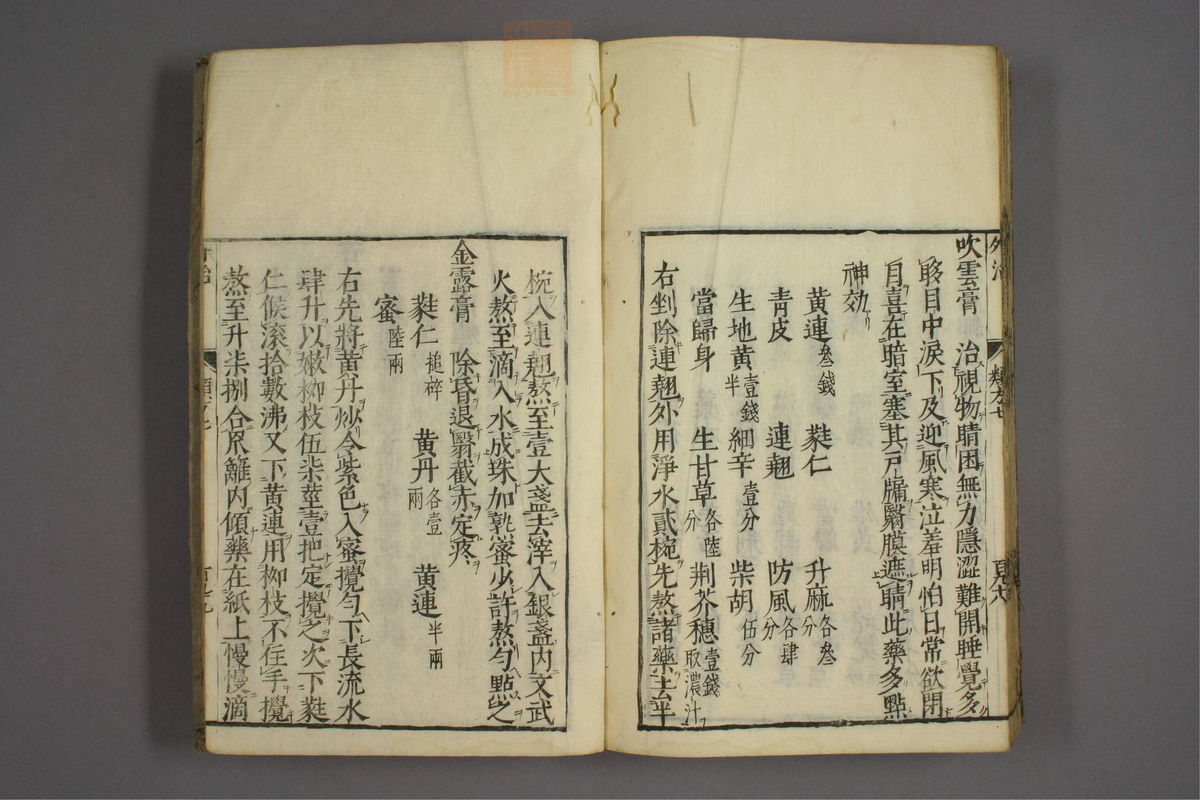 吹雲膏 治視物睛困無力隱澀難開睡覺多
眵目中淚下及迎風寒泣羞明怕日常欲閉
目喜在暗室塞其戸牖翳膜遮睛此藥多點
神効
黃連叁錢 蕤仁 升麻各叁分
青皮 連翹 防風各肆分
生地黃壹錢半 細辛壹分 柴胡伍分
當歸身 生甘草各陸分 荆芥穗壹錢取濃汁
右剉除連翹外用淨水貳椀先熬諸藥去半
椀入連翹熬至壹大盞去滓入銀盞内文武
火熬至滴入水成珠加熟蜜少許熬勻點之
金露膏 除昏退翳截赤定疼
蕤仁搥碎 黃丹各壹兩 黃連半兩
蜜陸兩
右先將黃丹炒令紫色入蜜攪勻下長流水
肆升以嫩栁枝伍柒莖壹把定攪之次下蕤
仁候滚拾數沸又下黃連用栁枝不住手攪
熬至升柒捌合笊籬内傾藥在紙上慢慢滴